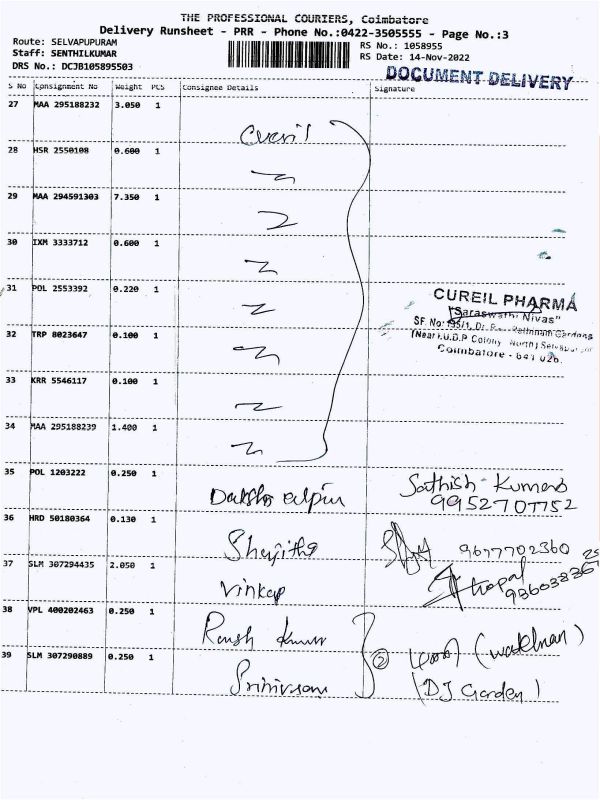 THE PROFESSIONAL COURIERS, Coimbatore
Delivery Runsheet - PRR - Phone No.:0422-3505555 - Page No.:3
Route: SELVAPUPURAM
Staff: SENTHILKUMAR
DRS No.: DCJB105895503
RS No.: 1058955
RS Date: 14-Nov-2022
DOCUMENT DELIVERY
S No Consignment No Weight PCS Consignee Details Signature
27 MAA 295188232 3.050 1
28 HSR 2550108 0.600 1
29 MAA 294591303 7.350 1
30 IXM 3333712 0.600 1
31 POL 2553392 0.220 1
CUREIL PHARMA
"Saraswathi Nivas"
SF. No: 195/1, Dr. Rathinam Gardens
(Near T.U.D.P Colony North) Selvapuram
Coimbatore - 641 026.
32 TRP 8023647 0.100 1
33 KRR 5546117 0.100 1
34 MAA 295188239 1.400 1
35 POL 1203222 0.250 1 Sathish Kumar
9952701752
36 HRD 50180364 0.130 1 9677702360
37 SLM 307294435 2.050 1
38 VPL 400202463 0.250 1 (watchman)
39 SLM 307290889 0.250 1 Srinivasan (DJ Garden)